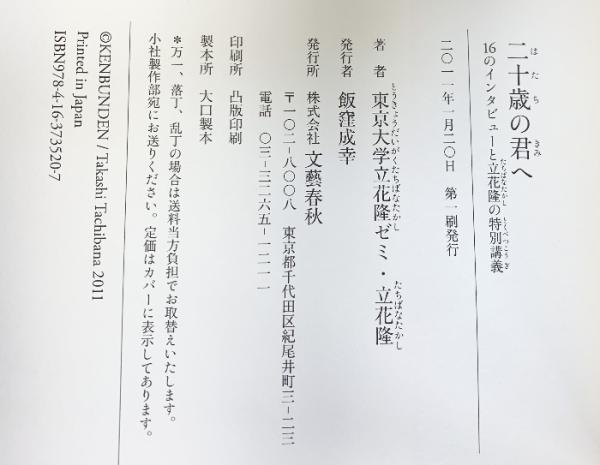 二十歳の君へ
はたち
きみ
16のインタビューと立花隆の特別講義
たちばなたかし
とくべつこうぎ
二〇一一年一月二〇日 第一刷発行
著者 東京大学立花隆ゼミ・立花隆
とうきょうだいがくたちばなたかし
たちばなたかし
発行者 飯窪成幸
発行所 株式会社 文藝春秋
〒一〇二-八〇〇八 東京都千代田区紀尾井町三-二三
電話 〇三-三二六五-一二一一
印刷所 凸版印刷
製本所 大口製本
*万一、落丁、乱丁の場合は送料当方負担でお取替えいたします。
小社製作部宛にお送りください。定価はカバーに表示してあります。
©KENBUNDEN / Takashi Tachibana 2011
Printed in Japan
ISBN978-4-16-373520-7